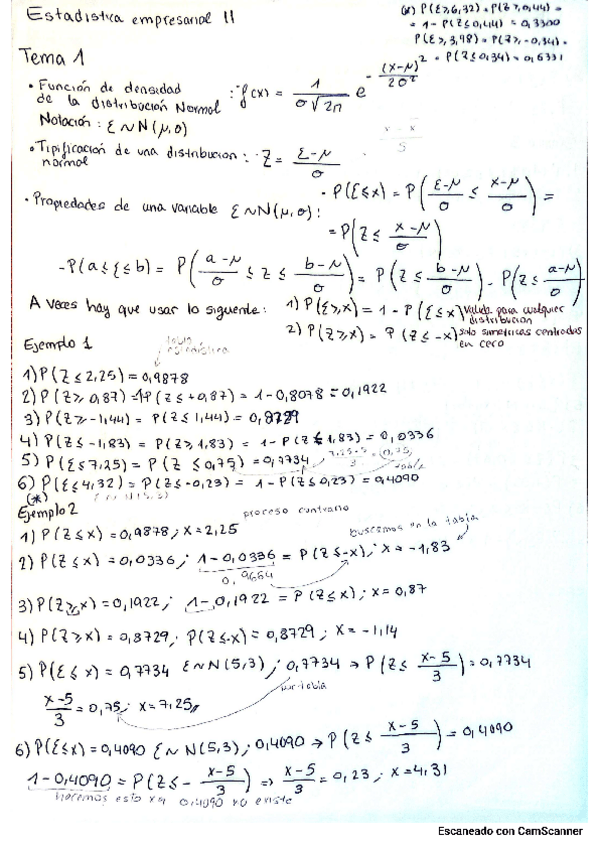 Estadística empresarial II
(*) P(ξ≥6,32) = P(Z≥0,44) =
= 1 - P(Z≤0,44) = 0,3300
P(ξ≥3,98) = P(Z≥-0,34) =
= P(Z≤0,34) = 0,6331
Tema 1
• Función de densidad de la distribución Normal : f(x) = 1/(σ√2π) e^-(x-μ)²/2σ²
Notación: ξ~N(μ,σ)
• Tipificación de una distribución normal : Z = (ξ-μ)/σ
• Propiedades de una variable ξ~N(μ,σ):
- P(ξ≤x) = P((ξ-μ)/σ ≤ (x-μ)/σ) =
= P(Z≤ (x-μ)/σ)
- P(a≤ξ≤b) = P((a-μ)/σ ≤ Z ≤ (b-μ)/σ) = P(Z≤ (b-μ)/σ) - P(Z≤ (a-μ)/σ)
A veces hay que usar lo siguente: 1) P(ξ≥x) = 1 - P(ξ≤x) valida para cualquier distribución
2) P(Z≥x) = P(Z≤-x) solo simetricas centradas en cero
Ejemplo 1
1) P(Z≤2,25) = 0,9878
2) P(Z≥0,87) = 1-P(Z≤+0,87) = 1-0,8078 = 0,1922
3) P(Z≥-1,44) = P(Z≤1,44) = 0,8729
4) P(Z≤-1,83) = P(Z≥1,83) = 1-P(Z≤1,83) = 0,0336
5) P(ξ≤7,25) = P(Z≤0,75) = 0,7734
6) P(ξ≤4,32) = P(Z≤-0,23) = 1-P(Z≤0,23) = 0,4090
(*)
Ejemplo 2
proceso contrario
1) P(Z≤x) = 0,9878; x = 2,25
buscamos en la tabla
2) P(Z≤x) = 0,0336; 1-0,0336 = P(Z≤-x); x = -1,83
0,9664
3) P(Z≥x) = 0,1922; 1-0,1922 = P(Z≤x); x = 0,87
4) P(Z≥x) = 0,8729; P(Z≤-x) = 0,8729; x = -1,14
5) P(ξ≤x) = 0,7734 ξ~N(5,3); 0,7734 → P(Z≤ (x-5)/3) = 0,7734
(x-5)/3 = 0,75; x = 7,25
6) P(ξ≤x) = 0,4090 ξ~N(5,3); 0,4090 → P(Z≤ (x-5)/3) = 0,4090
1-0,4090 = P(Z≤- (x-5)/3) ⇒ (x-5)/3 = 0,23; x = 4,31
hacemos esto xq 0,4090 no existe
Escaneado con CamScanner